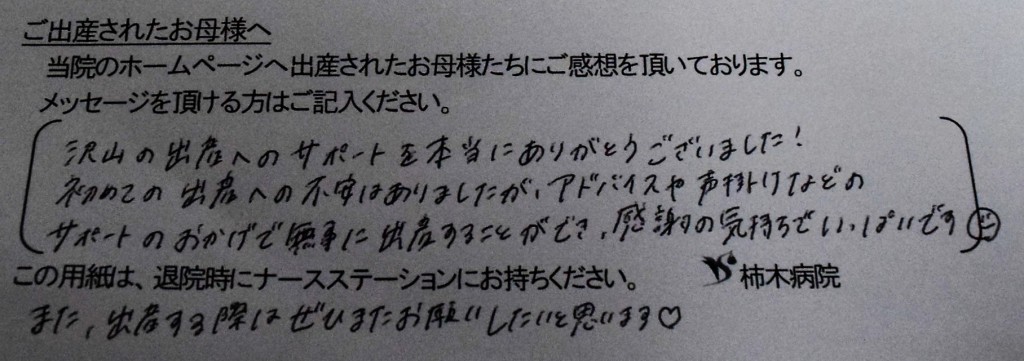 ご出産されたお母様へ
当院のホームページへ出産されたお母様たちにご感想を頂いております。
メッセージを頂ける方はご記入ください。
沢山の出産へのサポートを本当にありがとうございました!
初めての出産への不安はありましたが、アドバイスや声掛けなどの
サポートのおかげで無事に出産することができ、感謝の気持ちでいっぱいです
この用紙は、退院時にナースステーションにお持ちください。 柿木病院
また、出産する際はぜひまたお願いしたいと思います♡